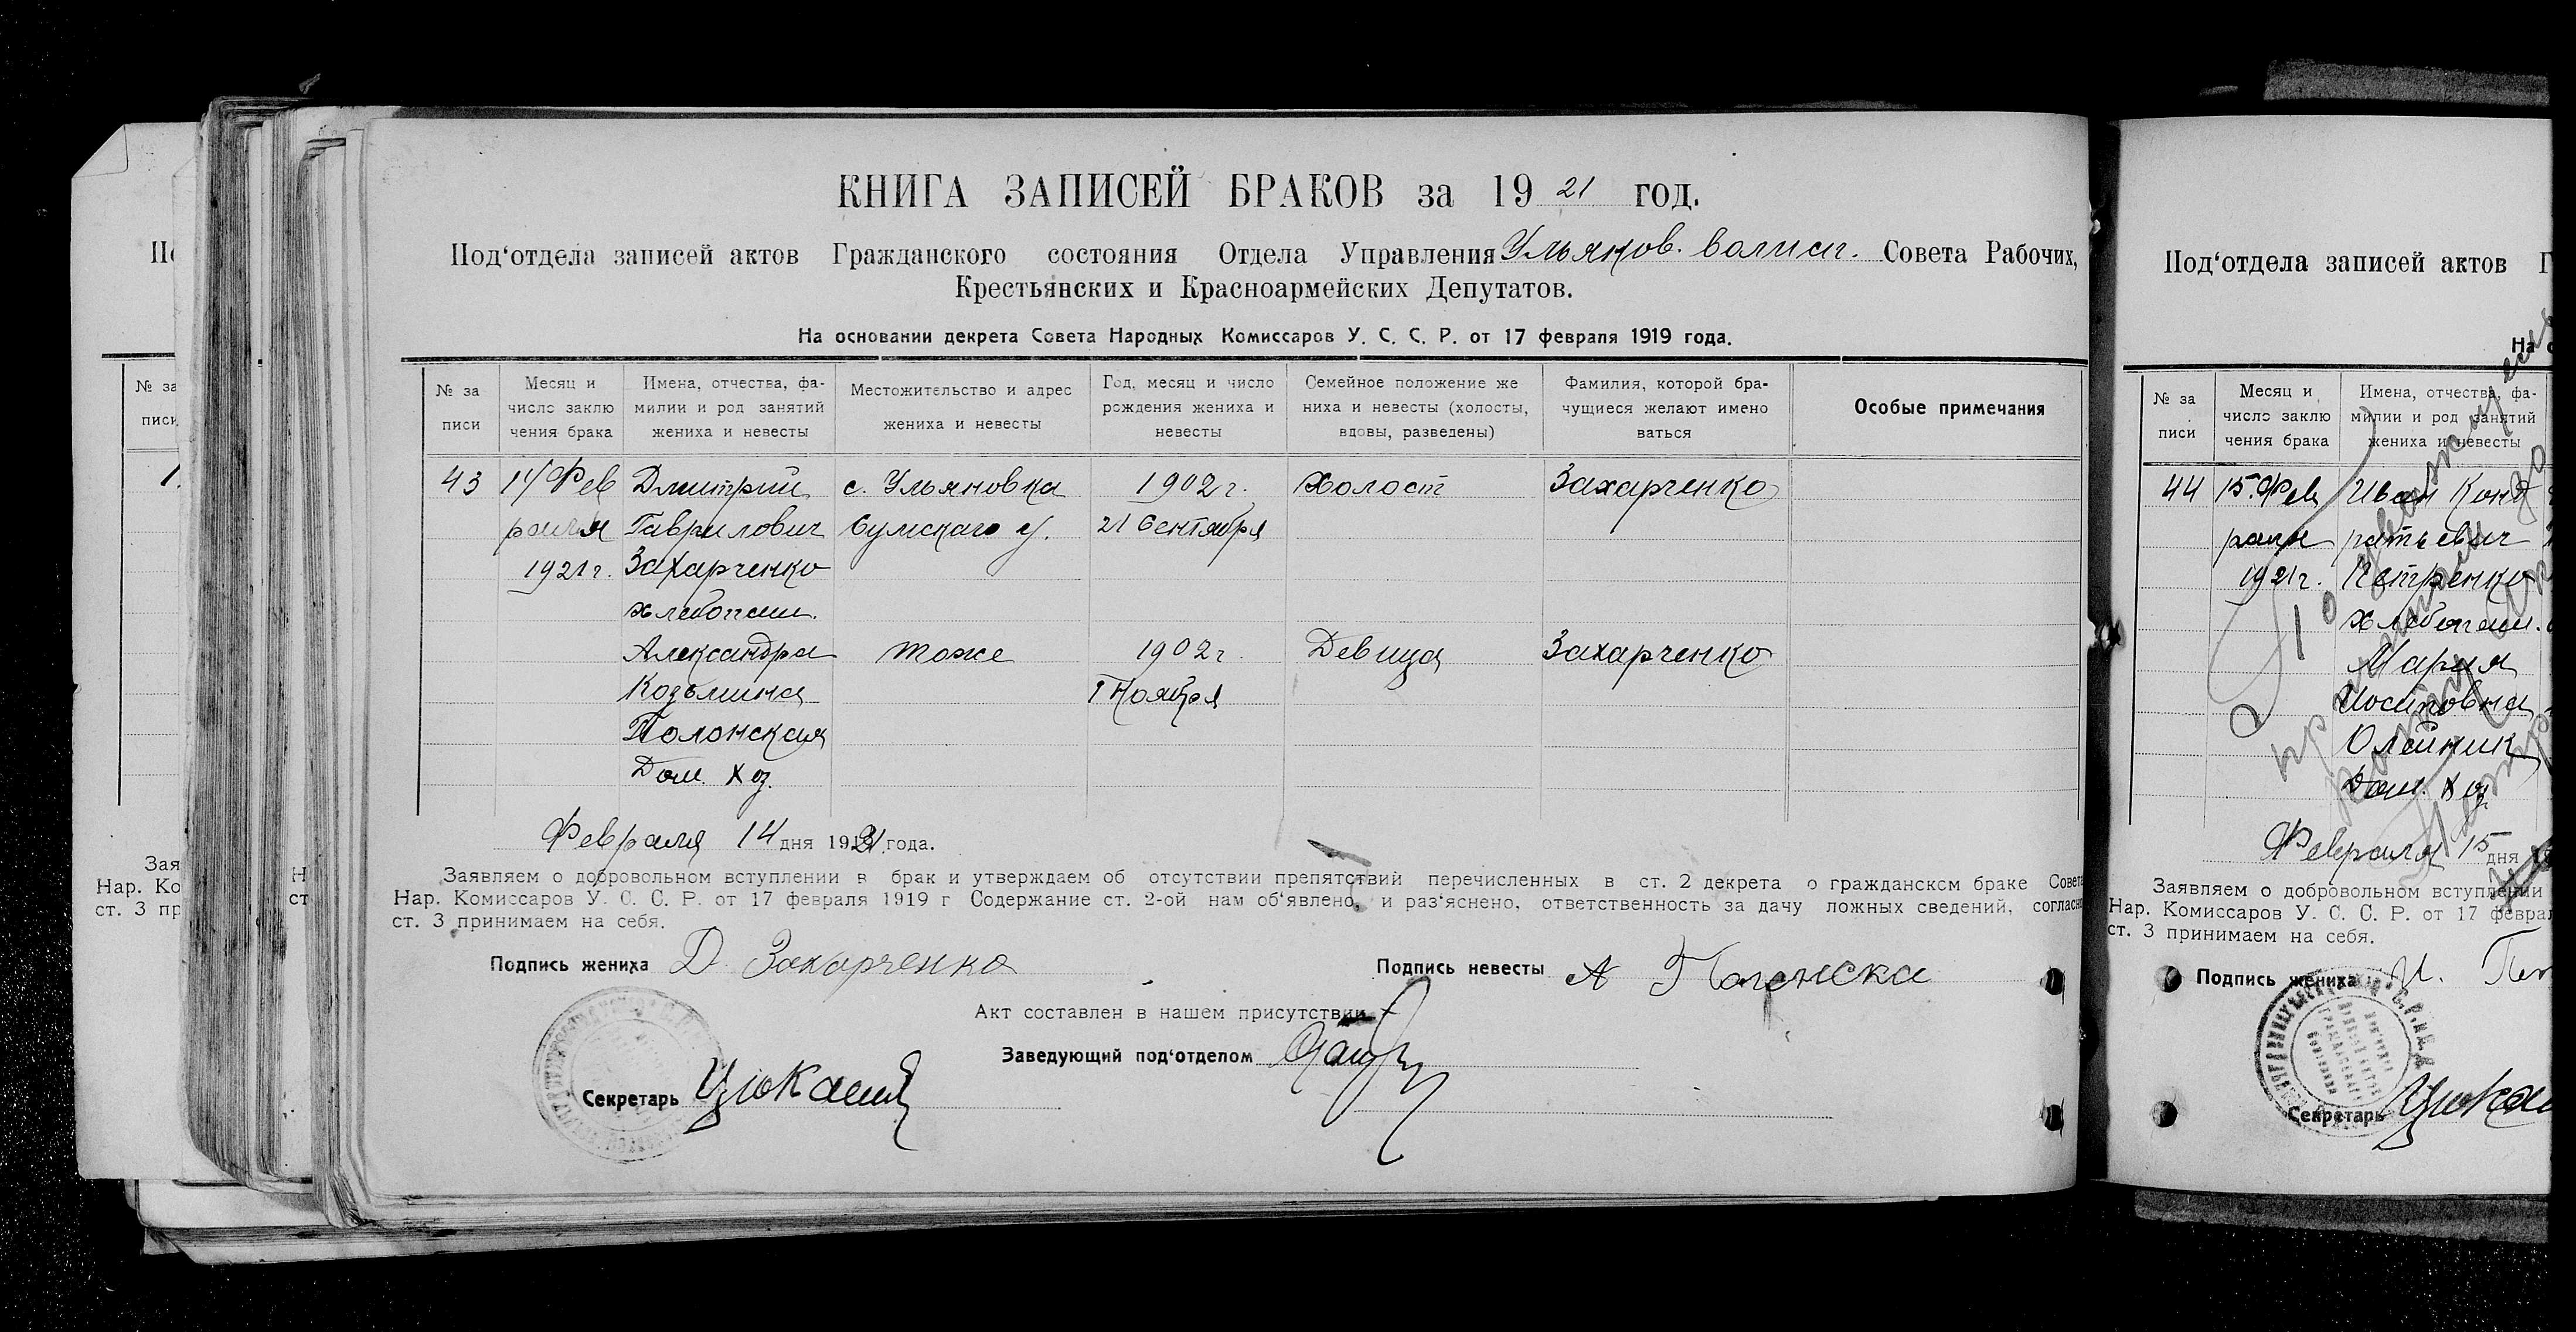 КНИГА ЗАПИСЕЙ БРАКОВ за 1921 год.
Под‘отдела записей актов Гражданского состояния Отдела Управления Ульянов. волисп. Совета Рабочих,
Крестьянских и Красноармейских Депутатов.
На основании декрета Совета Народных Комиссаров У. С. С. Р. от 17 февраля 1919 года.
№ за
писи
Месяц и
число заклю
чения брака
Имена, отчества, фа-
милии и род занятий
жениха и невесты
Местожительство и адрес
жениха и невесты
Год, месяц и число
рождения жениха и
невесты
Семейное положение же
ниха и невесты (холосты,
вдовы, разведены)
Фамилия, которой бра-
чущиеся желают имено
ваться
Особые примечания
43 14 Фев Дмитрий с. Ульяновка 1902 г. Холост Захарченко
раля Гаврилович Сумскаго у. 21 Сентября
1921 г. Захарченко
хлебопаш.
Александра тоже 1902 г Девица Захарченко
Козьмина 1 Ноября
Полонская
Дом. хоз.
Февраля 14 дня 1921 года.
Заявляем о добровольном вступлении в брак и утверждаем об отсутствии препятствий перечисленных в ст. 2 декрета о гражданском браке Совета
Нар. Комиссаров У. С. С. Р. от 17 февраля 1919 г Содержание ст. 2-ой нам об‘явлено, и раз‘яснено, ответственность за дачу ложных сведений, согласно
ст. 3 принимаем на себя.
Подпись жениха Д. Захарченко
Подпись невесты А Полонска
Акт составлен в нашем присутствии
Заведующий под‘отделом
Секретарь
Под‘отдела записей актов Г
На о
№ за
писи
Месяц и
число заклю
чения брака
Имена, отчества, фа-
милии и род занятий
жениха и невесты
44 15 Фев Иван Конд
раля ратьевич
1921 г. Петренко
Хлебопаш.
Мария
Иосиповна
Олейник
Дом. хоз
Февраля 15 дня
Заявляем о добровольном вступлении
Нар. Комиссаров У. С. С. Р. от 17 феврал
ст. 3 принимаем на себя.
Подпись жениха И. Пет
Секретарь
По
№ за
писи
Зая
Нар. Ко
ст. 3 пр
Н
ст